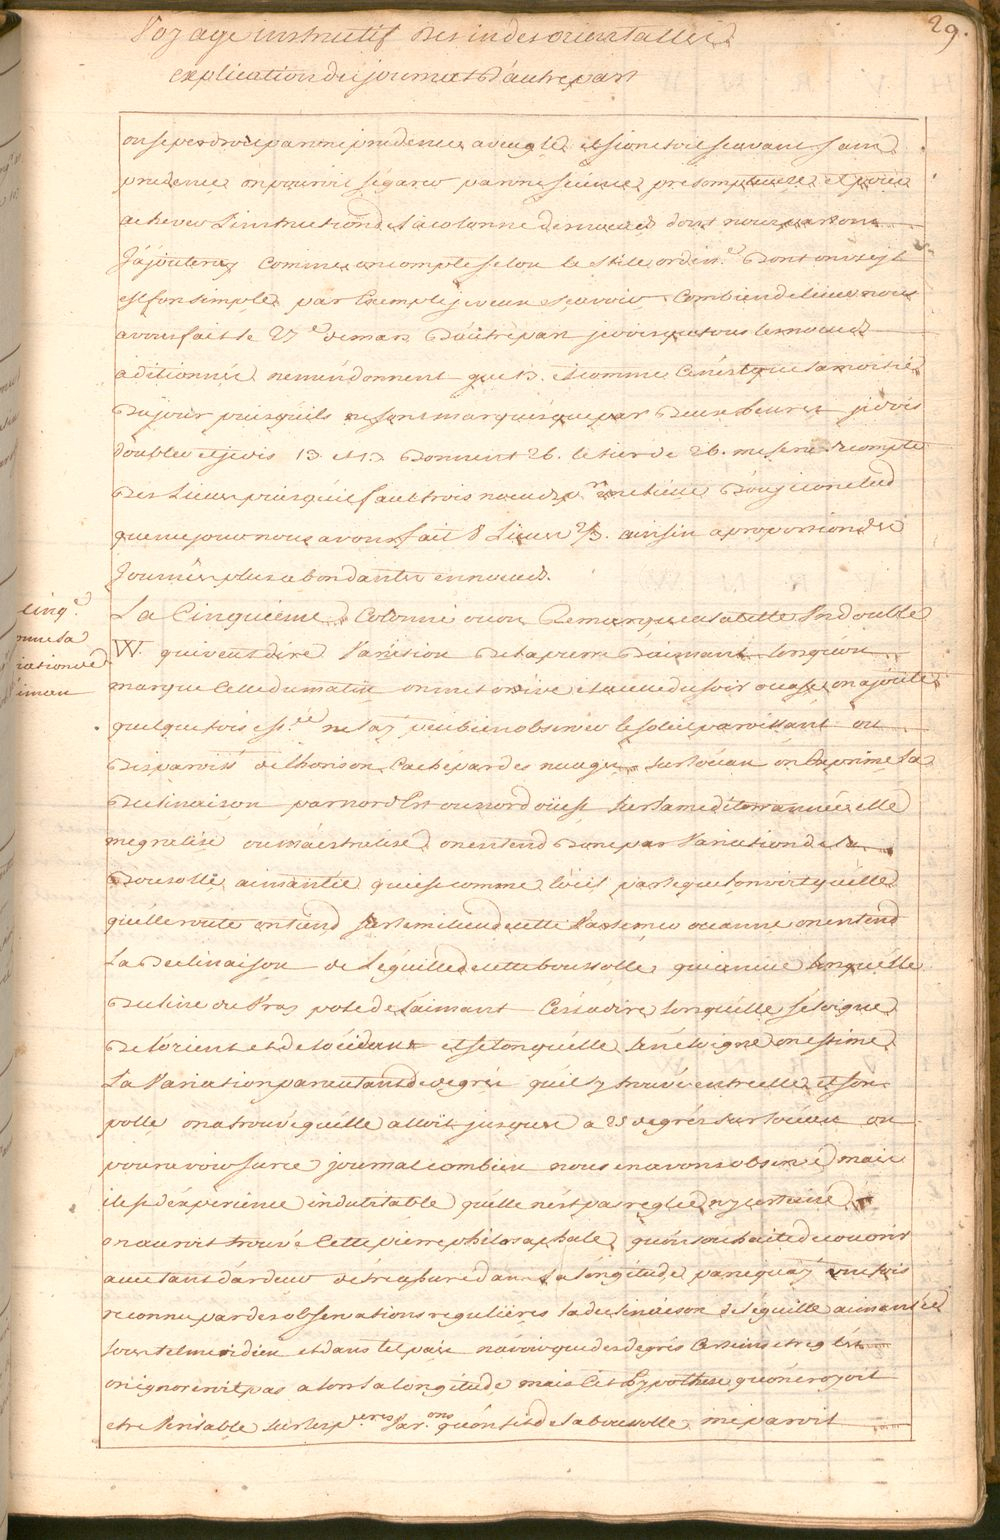 Voyage instructif des indes orientalles
29.
explication du journal d'autre part
on se perdroit par une prudence aveugle et si on etoit scavant sans
prudence on pouroit segarer par une science presomptueuse et pour
achever L'instruction de la colonne de nœuds dont nous parlons
J'ajouteray comme on compte selon le stile ordin.e dont on regle
est fon simple par Exemple je veux scavoir combien de lieues nous
avons fait le 27e de mars d'autre part je vois que tous les nœuds
aditionnés ne me donnent que 13. et comme ce n'est que la moitié
du jour puisqu'ils ne sont marqués que par deux heures je dois
doubler et je dis 13 et 13 donnent 26. le tier de 26. me sera le compte
des Lieues puisqu'il faut trois nœuds pr une lieue d'ou je conclud
que ce jour nous avons fait 8 Lieues 2/3. ainsi a proportion des
Journées plus abondantes en nœuds.
cinq.e
onne la
riation de
l'eiman
La Cinquieme Colonne ou on Remarque a la teste Un double
W. qui veut dire Variation de la pierre d'aimant lorsqu'on
marque celle du matin on met ortive et celle du soir occase on ajoute
quelque fois est.ée ne l'ay peu bien observer le soleil paroissant ou
disparoiss.t de l'horison caché par des nuages sur l'océan on Exprime la
declinaison par nord Est ou nord oüest sur la mediterrannée elle
megrelise ou maëstralise on entend donc par Variation de la
Boussolle aimantée qui est comme l'œil par lequel on voit qu'elle
qu'elle route on tiend sur le milieu de cette Vaste mer oceanne on entend
La declinaison de Léguille de cette boussolle qui arrive lors qu'elle
decline du Vray pole de L'aimant C'est a dire lors qu'elle s'eloigne
de lorient et de locident et selon qu'elle s'en eloigne on estime
La Variation par autant de degrés qu'il sy trouve entre elle et son
polle on a trouvé qu'elle alloit jusques a 25 degrés sur l'océan on
poura voir sur ce journal combien nous en avons observé mais
il est d'experience indubitable qu'elle n'est pas reglée ny certaine
on auroit trouvé cette pierre philosaphale qu'on souhaite decouvrir
avec tant d'ardeur de treasure dans la longitude parce quay une fois
reconnu par des observations regulieres la declinaison de l'eguille aimantée
sous tel meridien et dans tel païs n'avoir que des degrés certains et reglés
on ignoreroit pas alors la longitude mais cet hypothese qu'on croyoit
etre Veritable sur les p.eres Var.ons qu'on fit de la boussolle me paroit